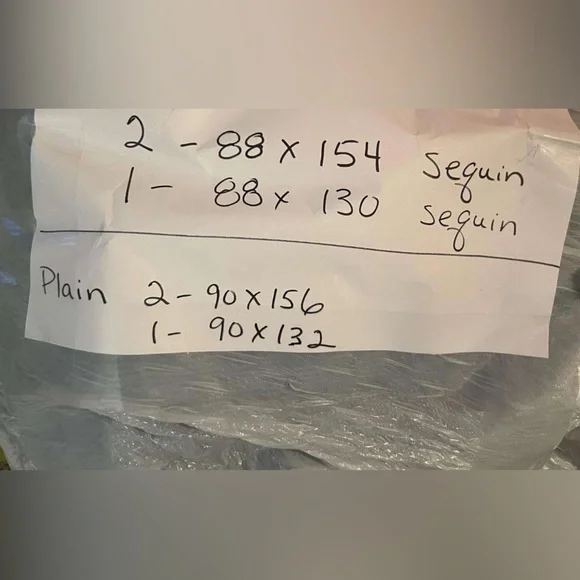 2 - 88 x 154 Sequin
1 - 88 x 130 Sequin
Plain 2 - 90 X 156
1 - 90 X 132